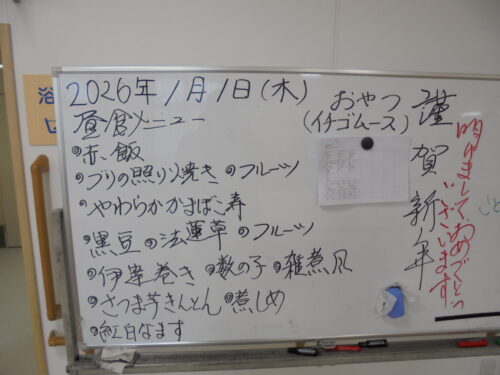 2026年1月1日(木)
昼食メニュー
おやつ
(イチゴムース)
赤飯
ブリの照り焼き フルーツ
やわらかかまぼこ寿
黒豆 法蓮草 フルーツ
伊達巻き 数の子 雑煮風
さつま芋きんとん 煮しめ
紅白なます
謹賀新年
明けまして、おめでとう
ございます。
浴